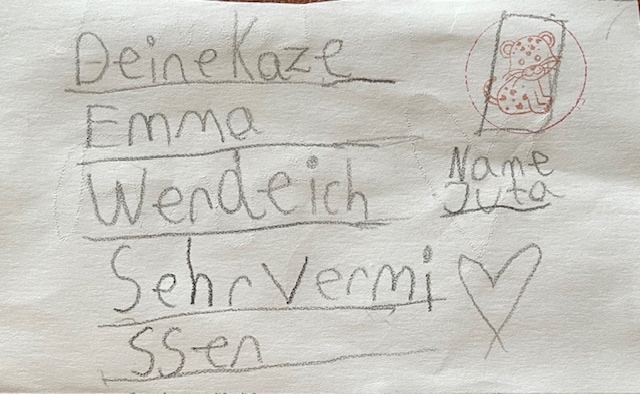 Deine Kaze
Emma
Werdeich
Sehr Vermi
ssen
Name
Juta